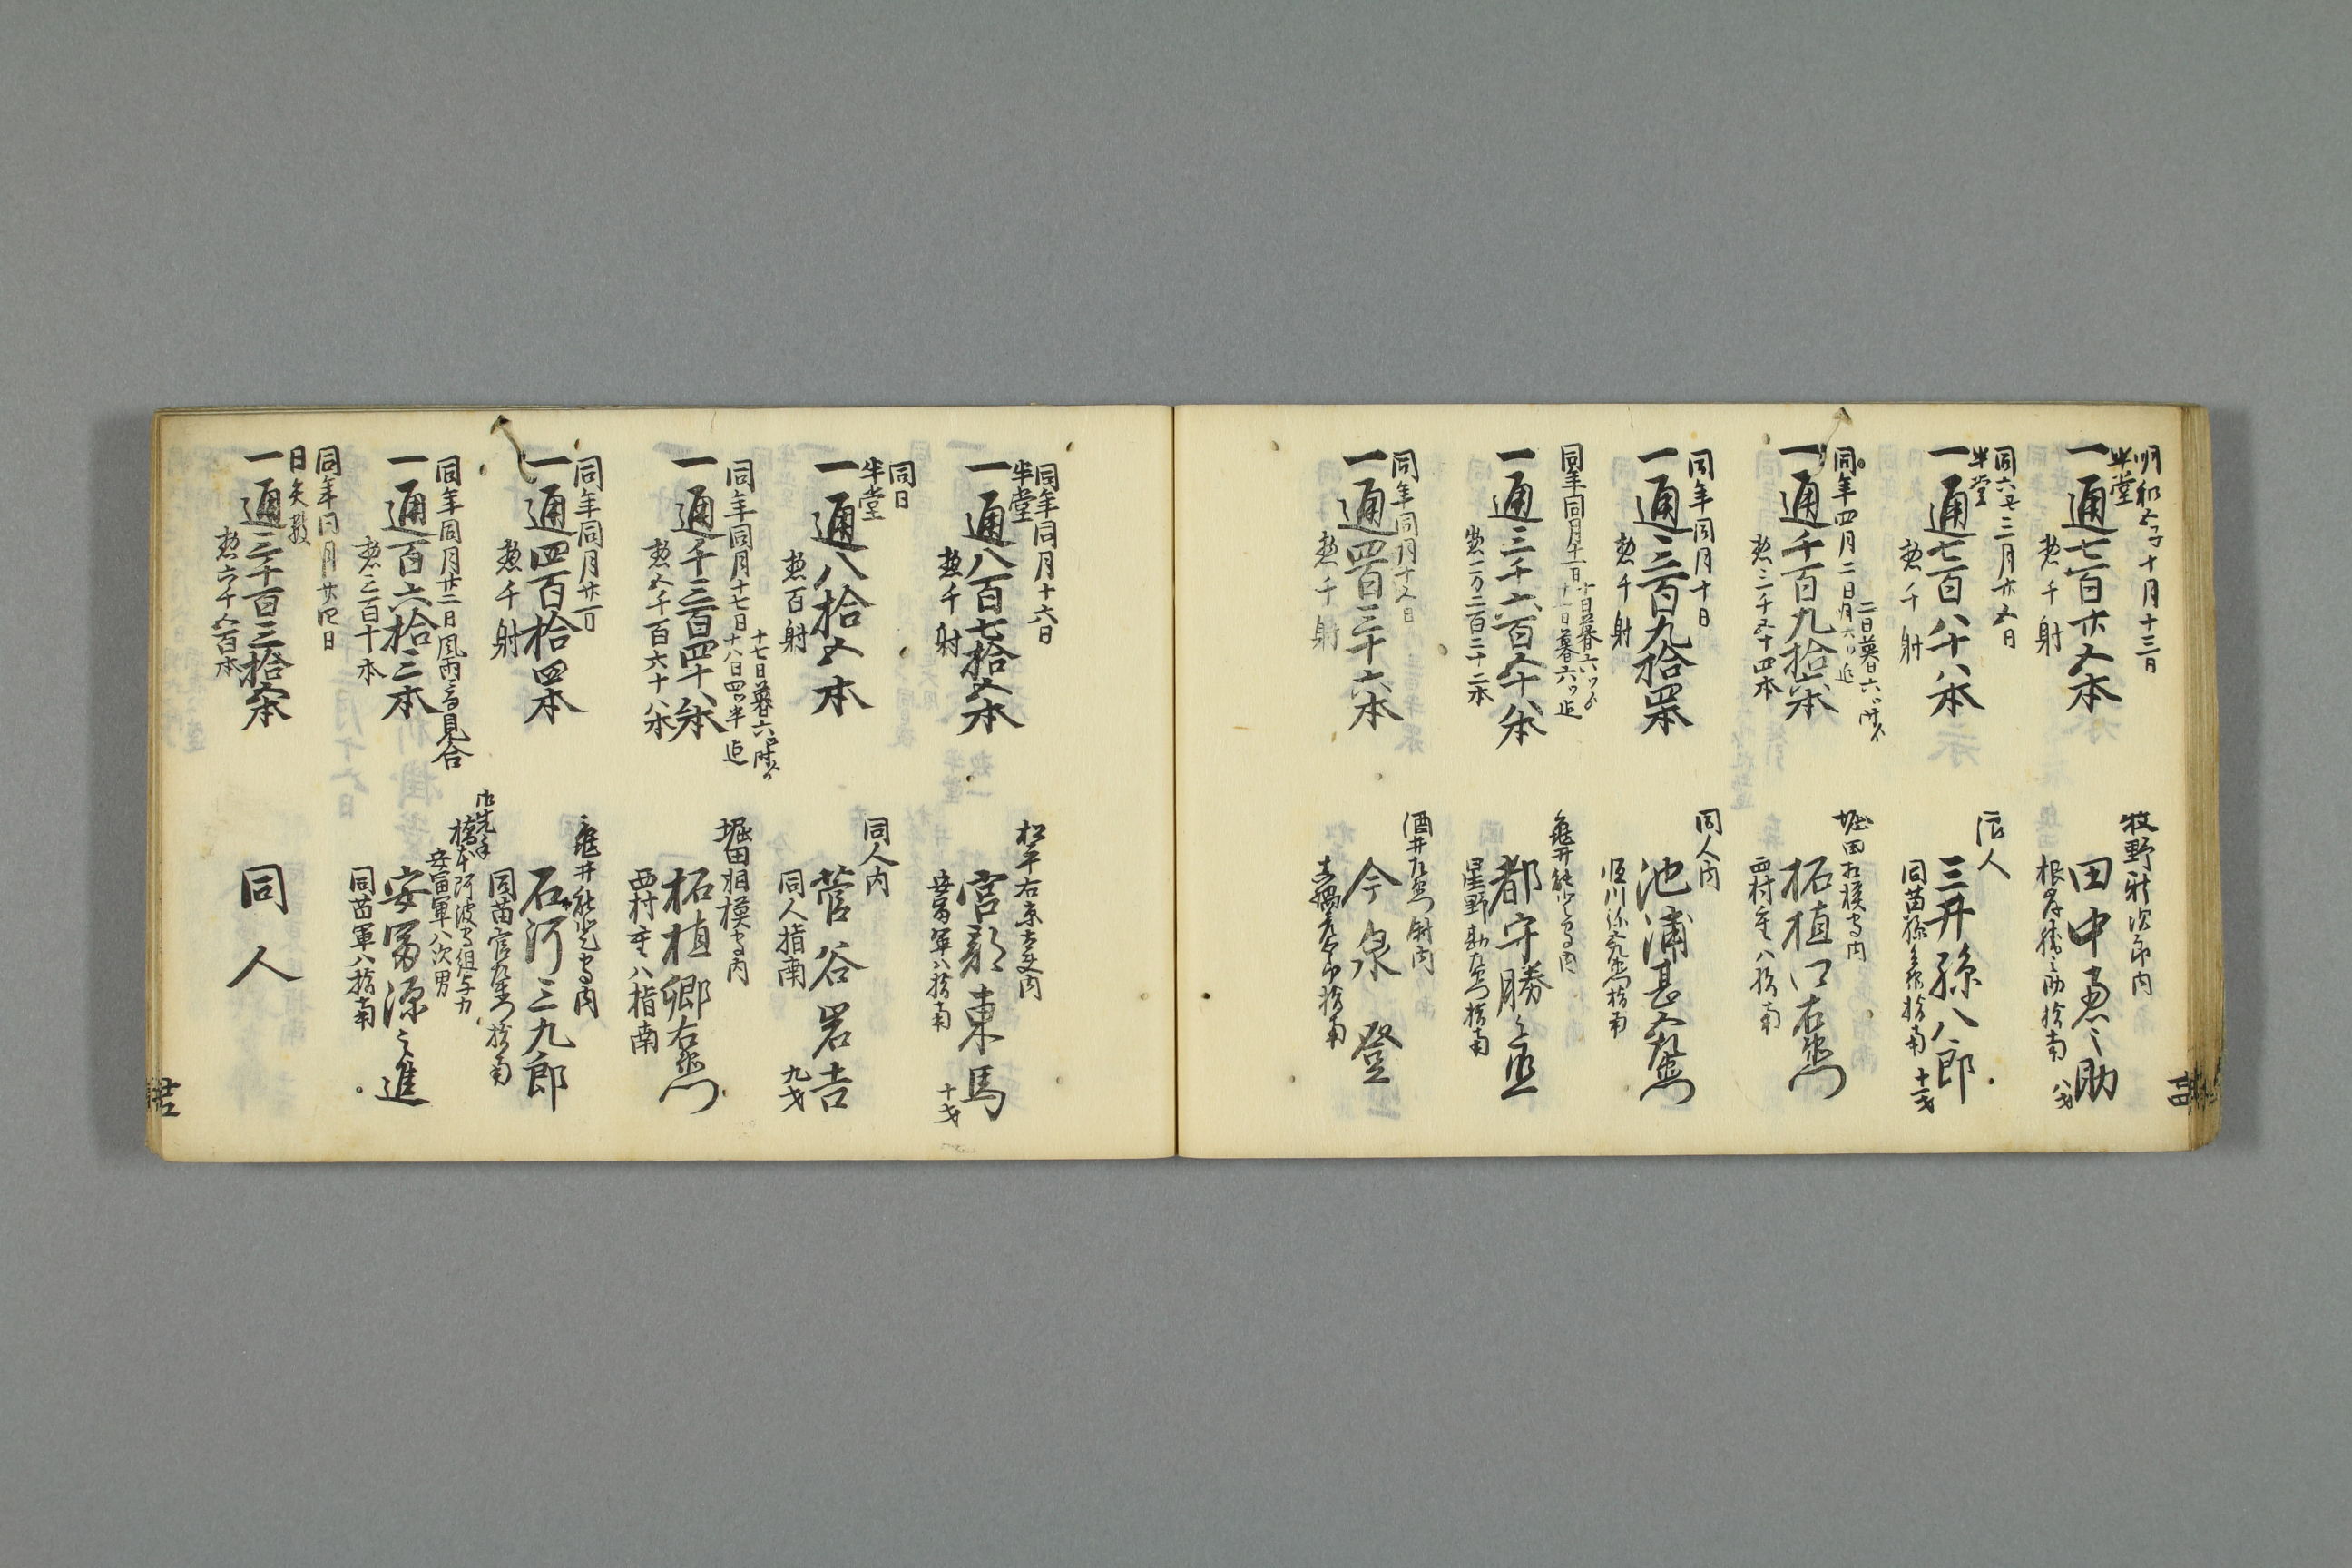 明和五子十月十三日
半堂
一通七百廿五本
惣千射
牧野新次郎内
田中恵之助
根岸勝之助指南 八才
同六丑三月廿五日
半堂
一通七百八十八本
惣千射
浪人
三井孫八郎
同苗孫兵衛指南 十二才
同年四月二日
二日暮六ツ時ゟ
一通千百九拾六本
惣三千五十四本
堀田相模守内
柘植口右衛門
西村重八指南
同年同月十日
一通三百九拾四本
惣千射
同人内
池浦甚五左衛門
恒川弥五左衛門指南
同年同月十一日
十日暮六ツゟ
十一日暮六ツ迄
一通三千六百五十八本
惣一万二百二十二本
亀井能登守内
都守勝之丞
星野勘左衛門指南
同年同月十五日
一通四百三十六本
惣千射
酒井左衛門尉内
今泉登
同年同月十六日
半堂
一通八百七拾五本
惣千射
松平右京大夫内
宮部東馬
安富軍八指南 十才
同日
半堂
一通八拾五本
惣百射
同人内
菅谷岩吉
同人指南 九才
同年同月十七日
十七日暮六ツ時ゟ
十八日四ツ半迄
一通千三百四十八本
惣五千百六十八本
堀田相模守内
柘植郷右衛門
西村重八指南
同年同月廿一日
一通四百拾四本
惣千射
亀井能登守内
石河三九郎
同苗官左衛門指南
同年同月廿二日風雨ニ而見合
一通百六拾三本
惣三百十本
御先手
橋本阿波守組与力
安富軍八次男
安富源之進
同苗軍八指南
同年同月廿四日
日矢数
一通三千百三拾六本
惣六千五百本
同人